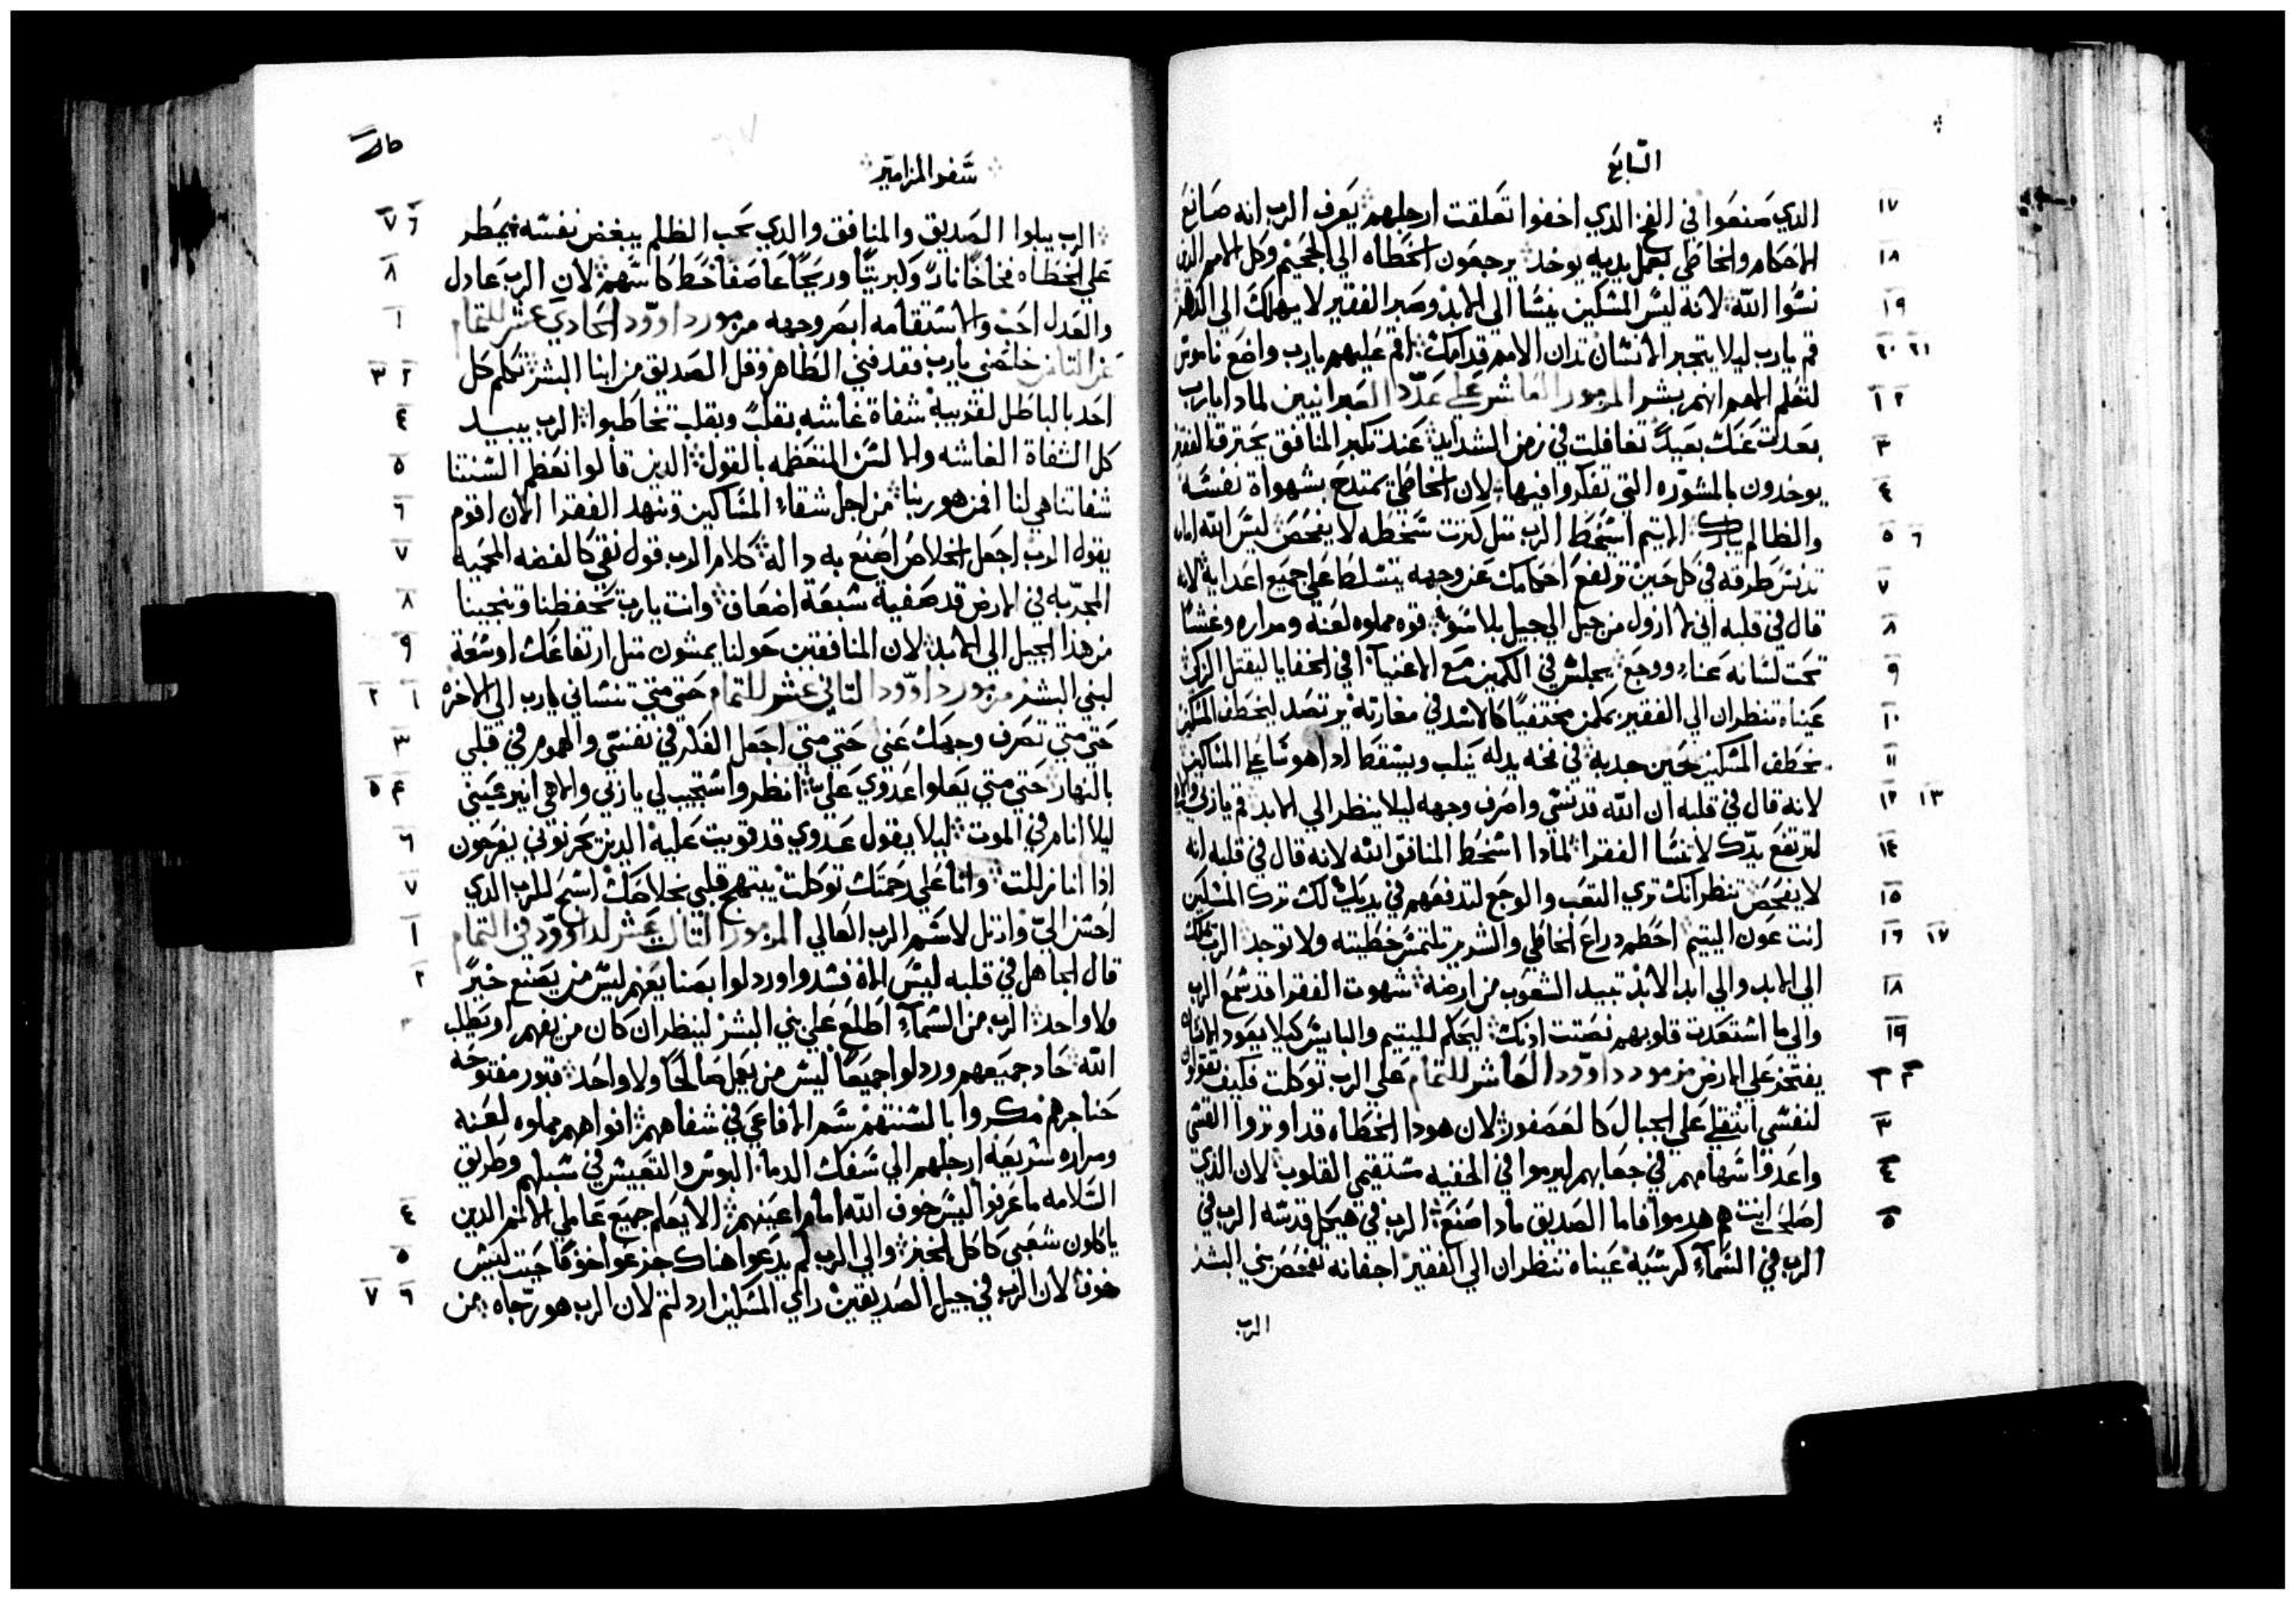 السابع
١٧ الدي صنعوا في الفخ الدي اخفوا تعلقت ارجلهم يعرف الرب انه صانع
١٨ الاحكام والخاطي بعمل يديه يوخد يرجعون الخطاه الي الجحيم وكل الامم الدين
١٩ نسوا الله لانه ليس المسكين ينسا الي الابد وصبر الفقير لا يهلك الي الدهر
٢٠ ٢١ قم يارب ليلا يتجبر الانسان تدان الامم قدامك اقم عليهم يارب واضع ناموس
١ ٢ لتعلم الامم انهم بشر المزمور العاشر علي عدد العبرانيين لمادا يارب
٣ بعدت عنك بعيدً تغافلت في زمن الشدايد عند تكبر المنافق يحترق الفقير
٤ يوخدون بالمشوره التي تفكروا فيها لان الخاطي يمتدح بشهواة نفسه
٥ ٦ والظالم يبارك الاتيم اسخط الرب متل كترت سخطه لا يفحص ليس الله امامه
٧ تدنس طرقه في كل حين ترتفع احكامك عن وجهه يتسلط علي جميع اعدايه لانه
٨ قال في قلبه اني لا ازول من جيل الي جيل بلا سو فوه مملوه لعنه ومراره وغشا
٩ تحت لسانه عناء ووجع يجلس في الكمين مع الاغنيآ في الخفايا ليقتل الزكي
١٠ عيناه تنظران الي الفقير يكمن مختفيًا كالاسد في مغارته يرتصد ليخطف المسكين
١١ يخطف المسكين حين جدبه في فخه يدله ينحنب ويسقط ادا هو تسا علي المساكين
١٢ ١٣ لانه قال في قلبه ان الله قد نسي واصرف وجهه ليلا ينظر الي الابد قم يا ربي والاهي
١٤ لترتفع يدك لا تنسا الفقرا لمادا اسخط المنافق الله لانه قال في قلبه انه
١٥ لا يفحص تنظر انك تري التعب والوجع لتدفعهم في يديك لك ترك المسكين
١٦ ١٧ انت عون اليتيم احطم دراع الخاطي والشرير تلتمس خطيته ولا توجد الرب يملك
١٨ الي الابد والي ابد الابد تبيد الشعوب من ارضه شهوت الفقرا قد سمع الرب
١٩ والي ما استعدت قلوبهم نصتت ادنك ليحكم لليتيم والبايس كيلا يعود الانسان
يفتخر علي الارض مزمور داوود العاشر للتمام علي الرب توكلت فكيف تقولون
٣ لنفسي انتقلي علي الجبال كالعصفور لان هودا الخطاه قد اوتروا القسي
٤ واعدوا سهامهم في جعابهم ليرموا في الخفيه مستقيمي القلوب لان الدي
٥ اصلحت انت هم هدموا فاما الصديق مادا صنع الرب في هيكل قدسه الرب في
الرب في السمآء كرسيه عيناه تنظران الي الفقير اجفانه تفحص بني البشر
الرب
سفر المزامير
٦ ٧ الرب يبلوا الصديق والمنافق والدي يحب الظلم يبغض نفسه يمطر
٨ علي الخطاه فخاخًا نارً وكبريتًا وريحًا عاصفًا حظ كاسهم لان الرب عادل
١ والعدل احب والاستقامه ابصر وجهه مزمور داوود الحادي عشر للتمام
٢ ٣ عن التامن خلصني يارب فقد فني الطاهر وقل الصديق من ابنا البشر تكلم كل
٤ احد بالباطل لقريبه شفاة غاشه بقلبً وبقلب تخاطبوا الرب يبيد
٥ كل الشفاة الغاشه والالسن المتعظمه بالقول الدين قالوا نعظم السنتنا
٦ شفاتنا هي لنا افمن هو ربنا من اجل شقاء المساكين وتنهد الفقرا الان اقوم
٧ يقول الرب اجعل الخلاص اصنع به دالة كلام الرب قول نقي كالفضه المحميه
٨ المجربه في الارض قد صفيه سبعة اضعاف وانت يارب تحفظنا وتنجينا
٩ من هدا الجيل الي الابد لان المنافقين حولنا يمشون متل ارتفاعك اوسعة
١ ٢ لبني البشر مزمور داوود التاني عشر للتمام حتي متي تنساني يارب الي الاخره
٣ حتي متي تصرف وجهك عني حتي متي اجعل الفكر في نفسي والهموم في قلبي
٤ ٥ بالنهار حتي متي يعلوا عدوي علي انظر واستجيب لي يا ربي والاهي انير عيني
٦ ليلا انام في الموت ليلا يقول عدوي قد قويت عليه الدين يحزنوني يفرحون
٧ اذا انا زللت وانا علي رحمتك توكلت يبتهج قلبي بخلاصك اسبح للرب الدي
١ احسن الي وارتل لاسم الرب العالي المزمور التالت عشر لداوود في التمام
٢ قال الجاهل في قلبه ليس الاه فسدوا وردلوا بصنايعهم ليس من يصنع خيرً
٣ ولا واحد الرب من السمآء اطلع علي بني البشر لينظر ان كان من يفهم او يطلب
الله حاد جميعهم وردلوا جميعًا ليس من يعمل صالحًا ولا واحد قبور مفتوحه
حناجرهم مكروا بالسنتهم سم الافاعي في شفاههم افواههم مملوه لعنه
ومراره سريعه ارجلهم الي سفك الدما البوس والتعيس في سبلهم وطريق
٤ السلامه ما عرفوا ليس خوف الله امام اعينهم الا يعلم جميع عاملي الاتم الدين
٥ ياكلون شعبي كاكل الخبز والي الرب لم يدعوا هناك جزعوا خوفًا حيت ليس
٦ ٧ خوف لان الرب في جيل الصديقين راي المسكين اردلتم لان الرب هو رجاه من